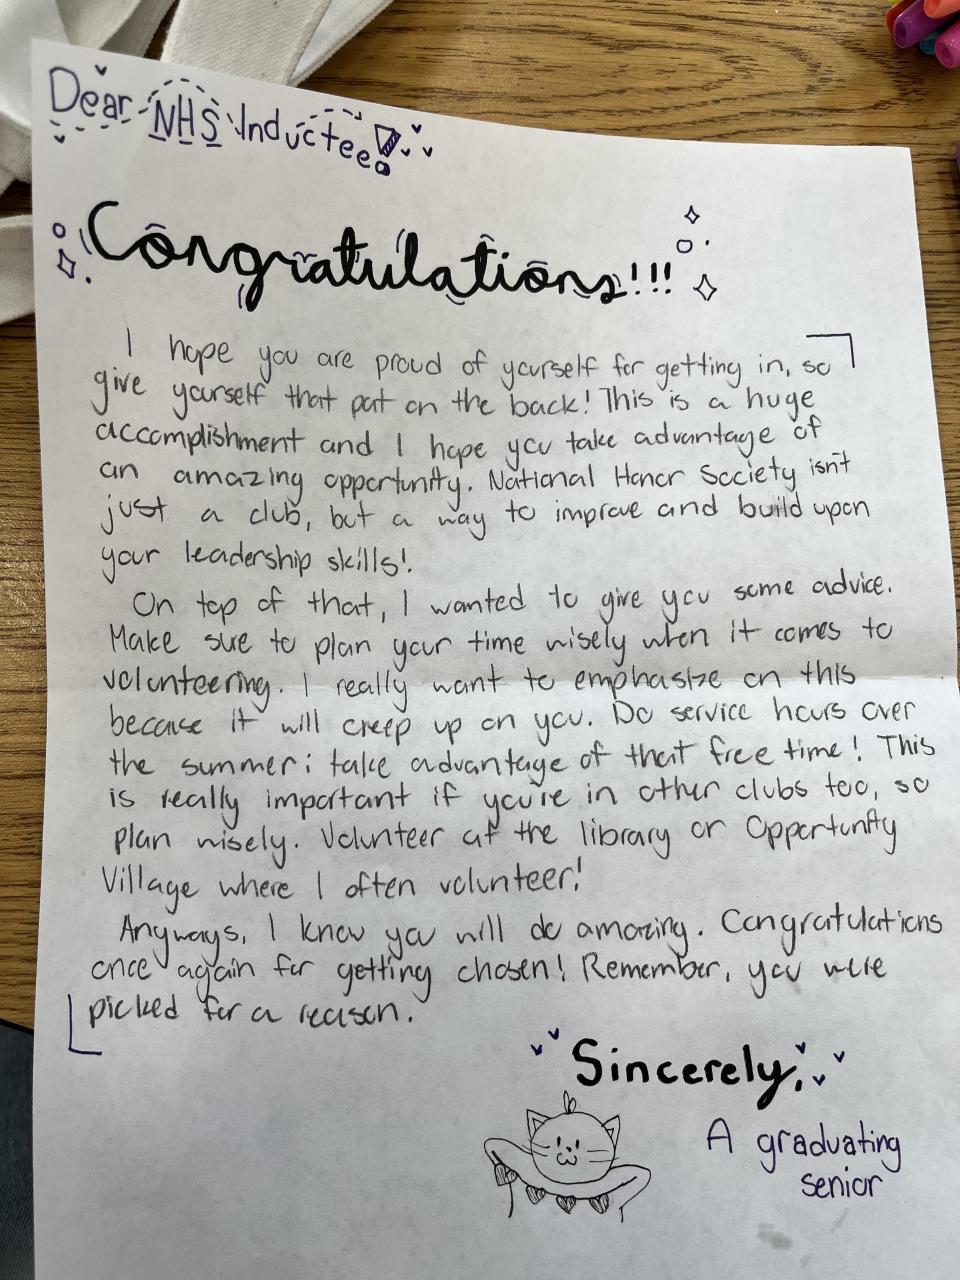 Dear NHS Inductee!
Congratulations!!!
I hope you are proud of yourself for getting in, so
give yourself that pat on the back! This is a huge
accomplishment and I hope you take advantage of
an amazing opportunity. National Honor Society isn't
just a club, but a way to improve and build upon
your leadership skills!
On top of that, I wanted to give you some advice.
Make sure to plan your time wisely when it comes to
volunteering. I really want to emphasize on this
because it will creep up on you. Do service hours over
the summer; take advantage of that free time! This
is really important if you're in other clubs too, so
plan wisely. Volunteer at the library or Opportunity
Village where I often volunteer!
Anyways, I know you will do amazing. Congratulations
once again for getting chosen! Remember, you were
picked for a reason.
Sincerely,
A graduating
senior